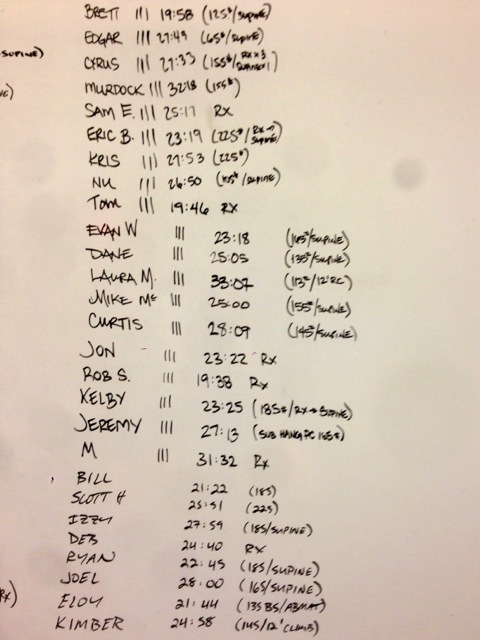 BRETT ||| 19:58 (125#/SUPINE)
EDGAR ||| 27:43 (65#/SUPINE)
SUPINE)
CYRUS ||| 27:33 (155#/RX x 3
MURDOCK ||| 32:18 (155#)
SAM E. ||| 25:17 RX
ERIC B. ||| 23:19 (225#/RX→SUPINE)
KRIS ||| 27:53 (225#)
NU ||| 26:50 (105#/SUPINE)
TOM ||| 19:46 RX
EVAN W ||| 23:18 (165#/SUPINE)
DANE ||| 25:05 (135#/SUPINE)
LAURA M. ||| 33:07 (113#/12'RC)
MIKE Mc ||| 25:00 (155#/SUPINE)
CURTIS ||| 28:09 (145#/SUPINE)
JON ||| 23:22 Rx
ROB S. ||| 19:38 Rx
KELBY ||| 23:25 (185#/RX→SUPINE)
JEREMY ||| 27:13 (SUB HANG PC 165#)
M ||| 31:32 Rx
BILL 21:22 (185)
SCOTT H 25:51 (225)
IZZY 27:59 (185/SUPINE)
DEB 24:40 RX
RYAN 22:45 (185/SUPINE)
JOEL 28:00 (165/SUPINE)
Rx)
ELOY 21:44 (135 BS/ABMAT)
KIMBER 24:58 (145/12'CLIMB)